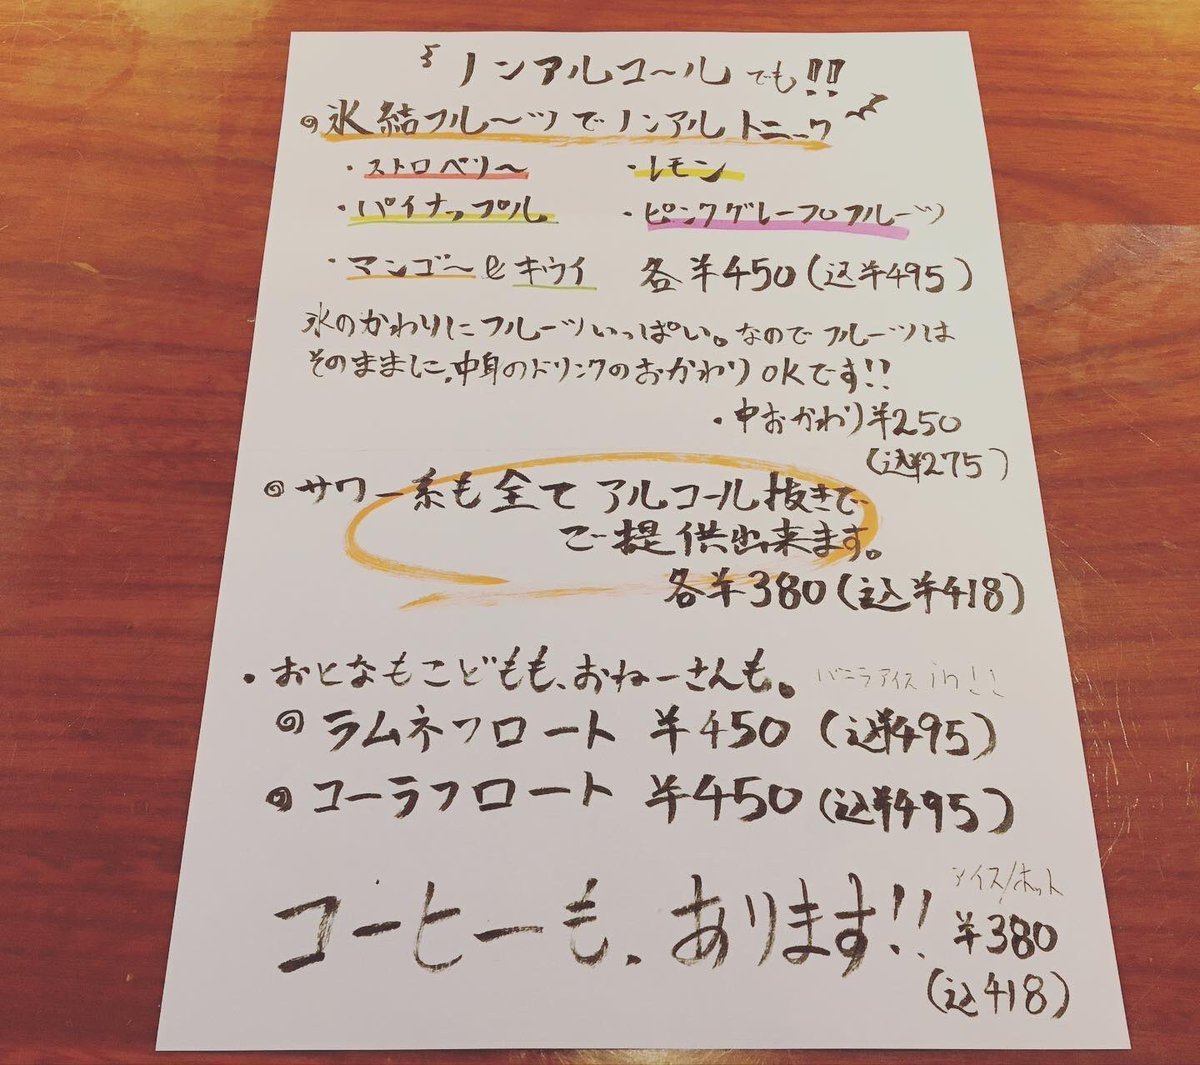 ノンアルコールでも!!
氷結フルーツでノンアルトニック
・ストロベリー ・レモン
・パイナップル ・ピンクグレープフルーツ
・マンゴー&キウイ 各¥450(込¥495)
氷のかわりにフルーツいっぱい。なのでフルーツは
そのままに、中身のドリンクのおかわりOKです!!
・中おかわり¥250
(込¥275)
◎サワー系も全てアルコール抜きで
ご提供出来ます。
各¥380(込¥418)
・おとなもこどもも、おねーさんも。 バニラアイスin!!
◎ラムネフロート ¥450(込¥495)
◎コーラフロート ¥450(込¥495)
アイス/ホット
コーヒーも、あります!! ¥380
(込418)